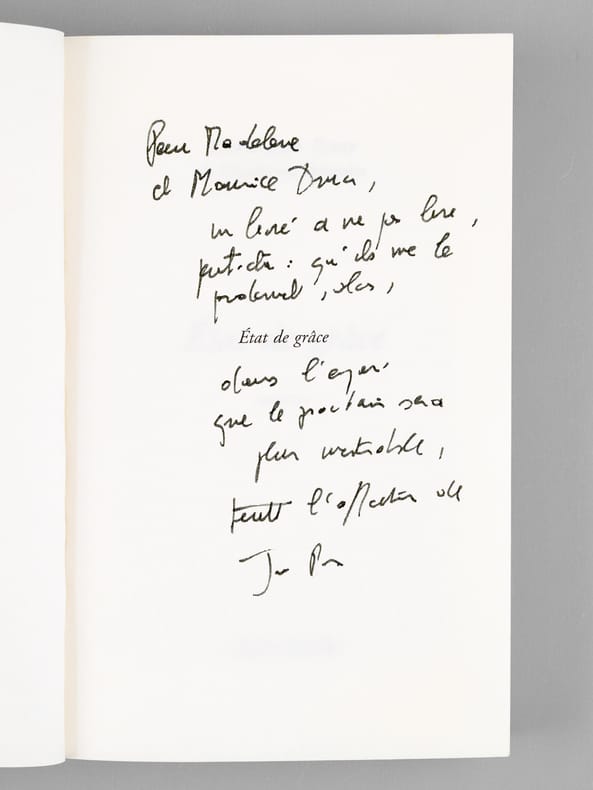 Pour Madeleine
et Maurice Druon,
un livre à ne pas lire,
peut-être : qu'ils me le
pardonnent, alors,
État de grâce
dans l'espoir
que le prochain sera
plus
toute l'affection de
Jean